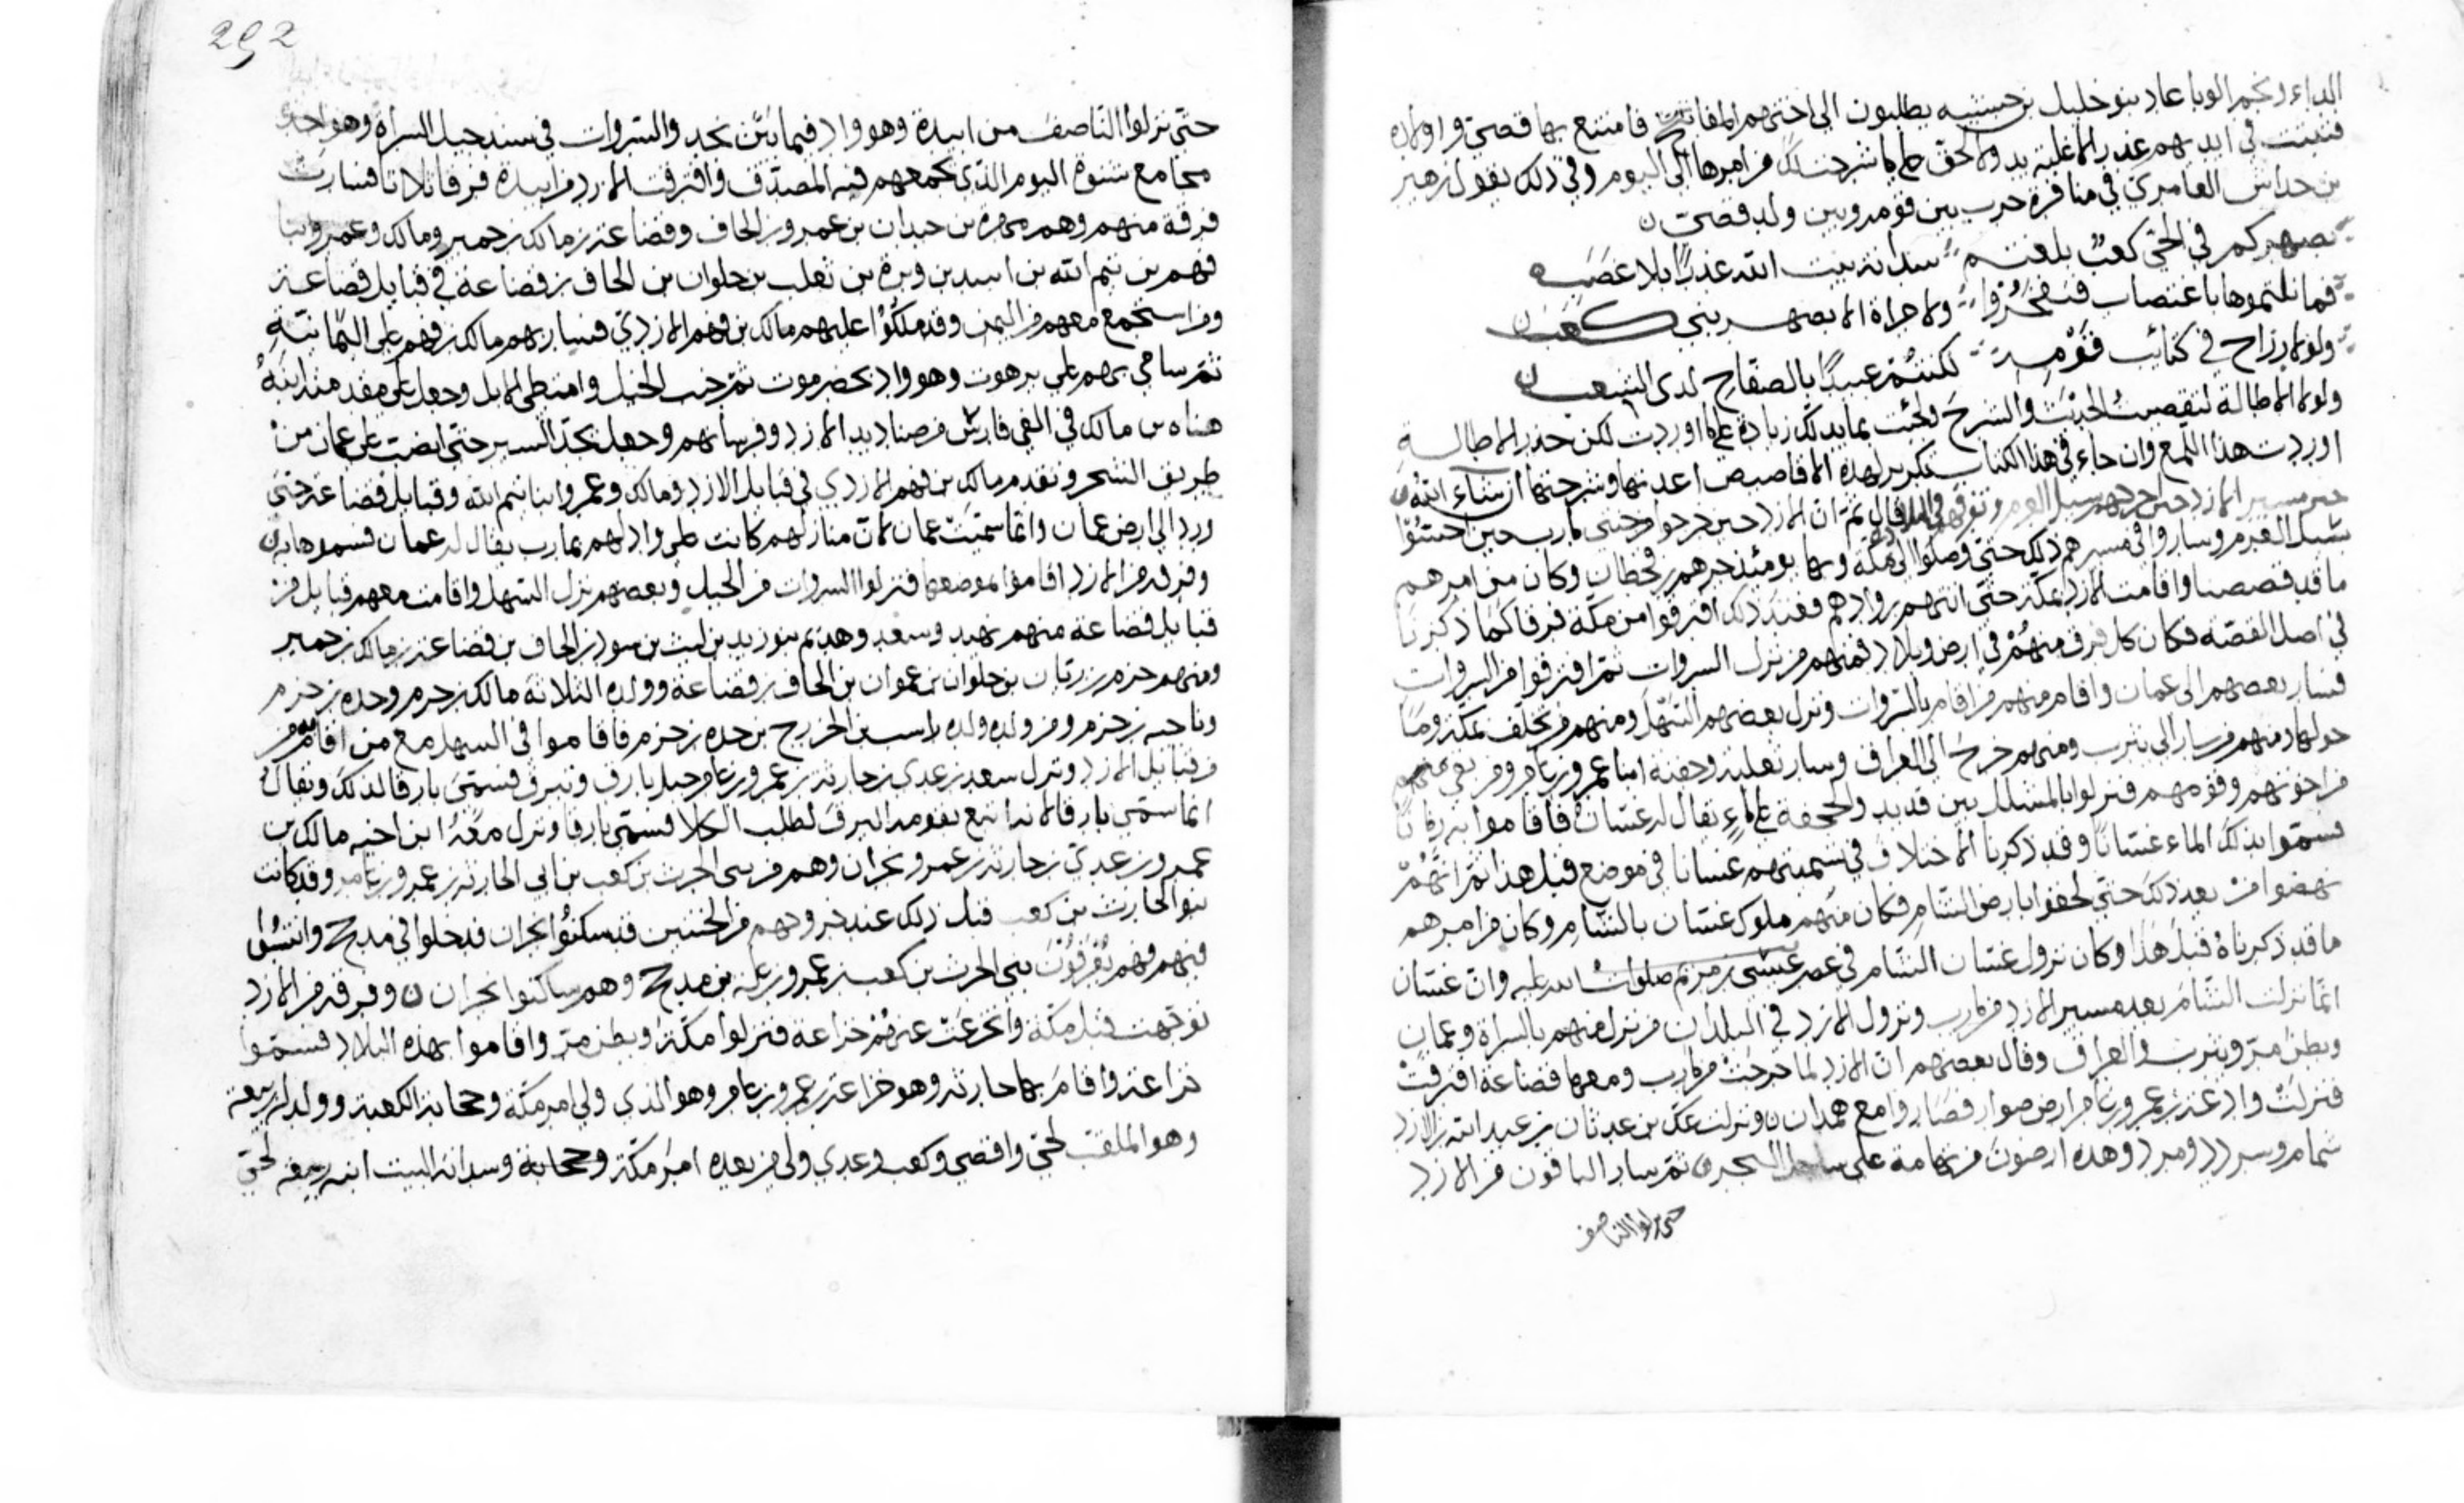 الداء وبحم الوبا عاد بنو خليل بن حبشيه يطلبون الى اختهم المفاتيح فامتنع بها قصي واولاده
فثبتت في ايديهم عذر الاغلبة يد ولا لحق على ما شرحت لك من امرها الى اليوم وفي ذلك يقول زهير
بن حداش العامري في منافرة حرب بين قومه وبين ولد قصي ن
بصهركم في الحي كعب بلغتم سدانة بيت الله عذرا بلا غصب
فما نلتموها باغتصاب فتفخروا ولا جراة الا بصهر بني كعب ن
ولولا رزاح في كتائب قومه لكنتم عبيدا بالصفاح لدى الشعب ن
ولولا الاطالة لتقصيت الحديث والشرح ولجئت بما يدلك زيادة على ما اوردت لكن حذر الاطالة
اوردت هذا اللمع وان جاء في هذا الكتاب تكرير لهذه الاقاصيص اعدتها وشرحتها ان شاء الله ن
خبر مسير الازد حين اخرجهم سيل العرم وتفرقهم في البلاد قال ثم ان الازد حين خرجوا من جنتي مارب حين احسوا
بسيل العرم وساروا في مسيرهم ذلك حتى وصلوا الى مكة وبها يومئذ جرهم بن قحطان وكان من امرهم
ما قد قصصنا واقامت الازد بمكة حتى اتتهم روادهم فعند ذلك افترقوا من مكة فرقا كما ذكرنا
في اصل القصه فكان كل فرق منهم في ارض وبلاد فمنهم من نزل السروات ثم افترقوا من السروات
فسار بعضهم الى عمان واقام منهم من اقام بالسروات ونزل بعضهم السهل ومنهم من تخلف بمكة وما
حولها ومنهم من سار الى يثرب ومنهم من خرج الى العراق وسار ثعلبة وجفنه ابنا عمرو بن عامر ومن بقي معهم
من اخوتهم وقومهم فنزلوا بالمشلل بين قديد والجحفة على ماء يقال له غسان فاقاموا به زمانا
فسموا بذلك الماء غسانا وقد ذكرنا الاختلاف في تسميتهم غسانا في موضع قبل هذا ثم انهم
نهضوا من بعد ذلك حتى لحقوا بارض الشام فكان منهم ملوك غسان بالشام وكان من امرهم
ما قد ذكرناه قبل هذا وكان نزول غسان الشام في عصر عيسى بن مريم صلوات الله عليه وان غسان
انما نزلت الشام بعد مسير الازد من مارب ونزول الازد في البلدان من نزل منهم بالسراة وعمان
وبطن مر ويثرب والعراق وقال بعضهم ان الازد لما خرجت من مارب ومعها قضاعة افترقت
فنزلت وادعة بن عمرو بن عامر ارض صوار فصاروا مع همدان ن ونزلت عك بن عدثان بن عبد الله بن الازد
شمام وسردد ومرد وهذه ارضون من تهامة على ساحل البحر ن ثم سار الباقون من الازد
حتى نزلوا الناصف
292
حتى نزلوا الناصف من ابيدة وهو واد فيما بين نجد والسروات في سند جبل السراة وهو احدى
مجامع شنوة اليوم الذي يجمعهم فيه المصدق وافترقت الازد من ابيدة فرقا ثلاثا فسارت
فرقة منهم وهم مهرة بن حيدان بن عمرو بن الحاف وقضاعة بن مالك بن حمير ومالك وعمرو ابنا
فهم بن تيم الله بن اسد بن وبرة بن تغلب بن حلوان بن الحاف بن قضاعة في قبايل قضاعة
ومن استجمع معهم من اليمن وقد ملكوا عليهم مالك بن فهم الازدي فسار بهم مالك بن فهم على اليمانية
ثم ساحي بهم على برهوت وهو واد بحضرموت ثم جنب الخيل وامتطى الابل وجعل على مقدمته ابنه
هناه بن مالك في الفي فارس من صناديد الازد وفرسانهم وجعل يجد السير حتى افضت على عمان من
طريق الشحر وتقدم مالك بن فهم الازدي في قبايل الازد ومالك وعمرو ابنا تيم الله وقبايل قضاعة حتى
ورد الى ارض عمان وانما سميت عمان لان منازلهم كانت على واد لهم بمارب يقال له عمان فسموها به ن
وفرقة من الازد اقاموا بموضعها فنزلوا السروات من الجبل وبعضهم نزل السهل واقامت معهم قبايل من
قبايل قضاعة منهم نهد وسعد وهذيم بنو زيد بن ليث بن سود بن الحاف بن قضاعة بن مالك بن حمير
ومنهم جرم بن زبان بن حلوان بن عمران بن الحاف بن قضاعة وولده الثلاثة مالك بن جرم وجده بن جرم
وناجيه بن جرم ومن ولده ولده راسب بن الخزرج بن جده بن جرم فاقاموا في السهل مع من اقام من
من قبايل الازد ونزل سعد بن عدي بن حارثة بن عمرو بن عامر جبل بارق وتبرق فسمي بارقا لذلك ويقال
انما سمي بارقا لانه اتبع بقومه البرق لطلب الكلا فسمي بارقا ونزل معه ابن اخيه مالك بن
عمرو بن عدي بن حارثة بن عمرو نجران وهم من بني الحرث بن كعب بن ابي الحارثة بن عمرو بن عامر وقد كانت
بنو الحارث بن كعب قبل ذلك عند خروجهم من الجنتين قد سكنوا نجران فدخلوا في مذحج وانتسبوا
فيهم فهم يعرفون ببني الحرث بن كعب بن عمرو بن علة بن مذحج وهم ساكنوا نجران ن وفرقة من الازد
توجهت قبل مكة وانخزعت عنهم خزاعة فنزلوا مكة وبطن مر واقاموا بهذه البلاد فسموا
خزاعة واقام بها حارثة وهو خزاعة بن عمرو بن عامر وهو الذي ولي امر مكة وحجابة الكعبة وولد له ربيعة
وهو الملقب لحي وافصى وكعب وعدي وولي من بعده امر مكة وحجابة وسدانة البيت ابنه ربيعة لحي